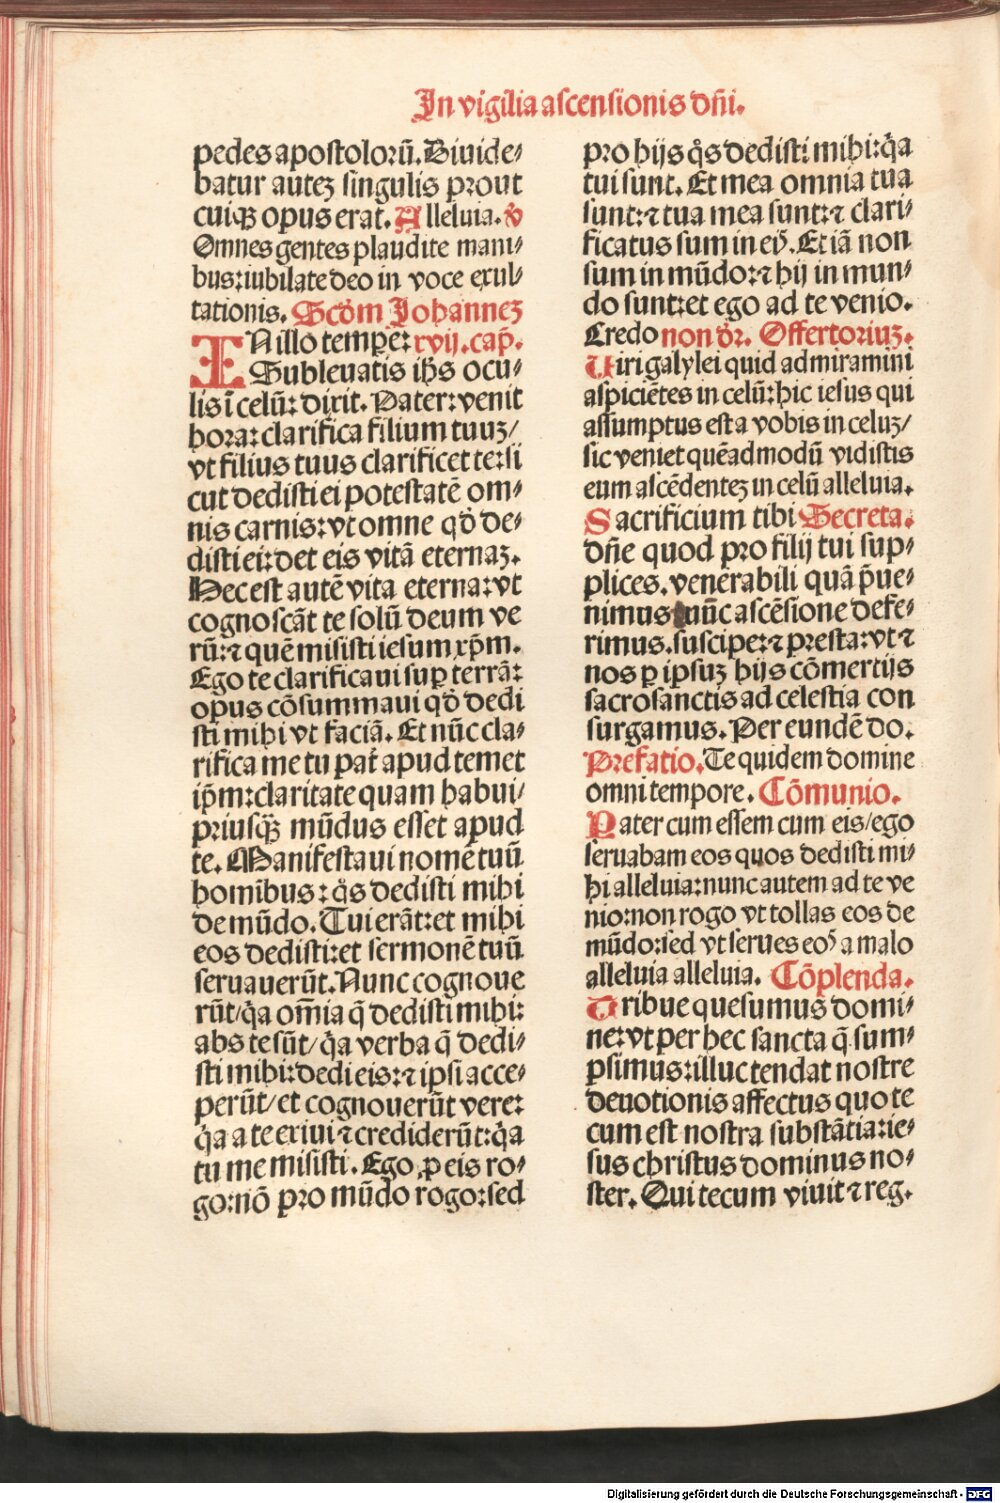 In vigilia ascensionis dñi.
pedes apostolorū. Diuide⸗
batur autez singulis prout
cuiqꝫ opus erat. Alleluia. ℣
Omnes gentes plaudite mani⸗
bus: iubilate deo in voce exul⸗
tationis. Scd̄m Johannez
IN illo tempe: xvij. cap̄.
Subleuatis ih̄s ocu⸗
lis ī celū: dixit. Pater: venit
hora: clarifica filium tuuz/
vt filius tuus clarificet te: si
cut dedisti ei potestatē om⸗
nis carnis: vt omne qd̄ de⸗
disti ei: det eis vitā eternaz.
Hec est autē vita eterna: vt
cognoscāt te solū deum ve
rū: ⁊ quē misisti iesum xp̄m.
Ego te clarificaui suꝑ terrā:
opus cōsummaui qd̄ dedi
sti mihi vt faciā. Et nūc cla⸗
rifica me tu pat̄ apud temet
ip̄m: claritate quam habui/
priusq̄ꝫ mūdus esset apud
te. Manifestaui nomē tuū
homībus: q̊s dedisti mihi
de mūdo. Tui erāt: et mihi
eos dedisti: et sermonē tuū
seruauerūt. Nunc cognoue
rūt/ q̄a om̄ia q̄ dedisti mihi:
abs te sūt/ q̄a verba q̄ dedi⸗
sti mihi: dedi eis: ⁊ ipsi acce⸗
perūt/ et cognouerūt vere:
q̄a a te exiui ⁊ crediderūt: q̄a
tu me misisti. Ego ꝓ eis ro⸗
go: nō pro mūdo rogo: sed
pro hijs q̊s dedisti mihi: q̄a
tui sunt. Et mea omnia tua
sunt: ⁊ tua mea sunt: ⁊ clari⸗
ficatus sum in eiꝰ. Et iā non
sum in mūdo: ⁊ hij in mun⸗
do sunt: et ego ad te venio.
Credo non dr̄. Offertoriuz.
Uiri galylei quid admiramini
aspiciētes in celū: hic iesus qui
assumptus est a vobis in celuz/
sic veniet quēadmodū vidistis
eum ascēdentez in celū alleluia.
Sacrificium tibi Secreta.
dn̄e quod pro filij tui sup⸗
plices. venerabili quā p̄ue⸗
nimus nūc ascēsione defe⸗
rimus. suscipe: ⁊ presta: vt ⁊
nos ꝑ ipsuz hijs cōmertijs
sacrosanctis ad celestia con
surgamus. Per eundē do.
Prefatio. Te quidem domine
omni tempore. Cōmunio.
Pater cum essem cum eis/ ego
seruabam eos quos dedisti mi⸗
hi alleluia: nunc autem ad te ve
nio: non rogo vt tollas eos de
mūdo: sed vt serues eoꝰ a malo
alleluia alleluia. Cōplenda.
Tribue quesumus domi⸗
ne: vt per hec sancta q̄ sum⸗
psimus: illuc tendat nostre
deuotionis affectus quo te
cum est nostra substātia: ie⸗
sus christus dominus no⸗
ster. Qui tecum viuit ⁊ reg.
Digitalisierung gefördert durch die Deutsche Forschungsgemeinschaft - DFG